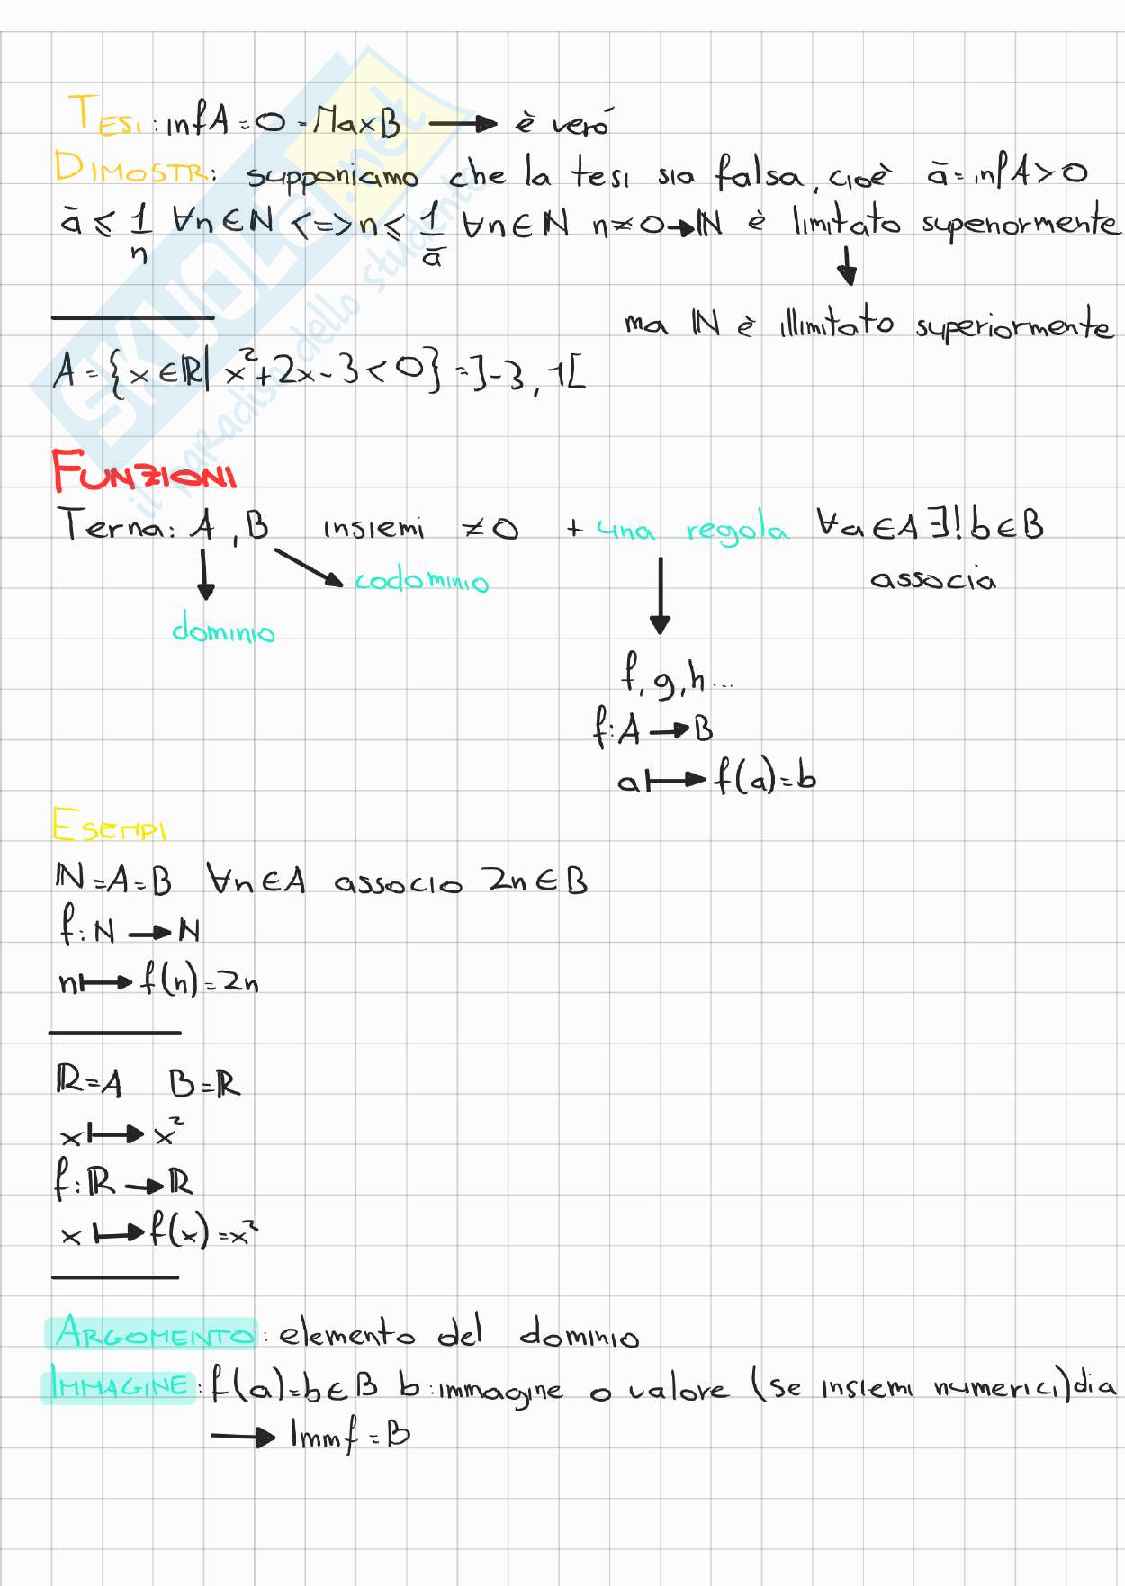 TESI: infA=0=MaxB → è vero
DIMOSTR: supponiamo che la tesi sia falsa, cioè ā=infA>0
ā ≤ 1/n ∀n∈N <=> n ≤ 1/ā ∀n∈N n≠0→ℕ è limitato superiormente
↓
ma ℕ è illimitato superiormente
A={x∈ℝ| x²+2x-3<0}=]-3,1[
FUNZIONI
Terna: A, B insiemi ≠0 + una regola ∀a∈A ∃! b∈B
codominio associa
dominio
f, g, h...
f: A → B
a ↦ f(a)=b
ESEMPI
ℕ=A=B ∀n∈A associo 2n∈B
f: N → N
n ↦ f(n)=2n
ℝ=A B=ℝ
x ↦ x²
f: ℝ → ℝ
x ↦ f(x)=x²
ARGOMENTO: elemento del dominio
IMMAGINE: f(a)=b∈B b:immagine o valore (se insiemi numerici) di a
→ Immf=B
SKUOLA.net
il paradiso dello studente